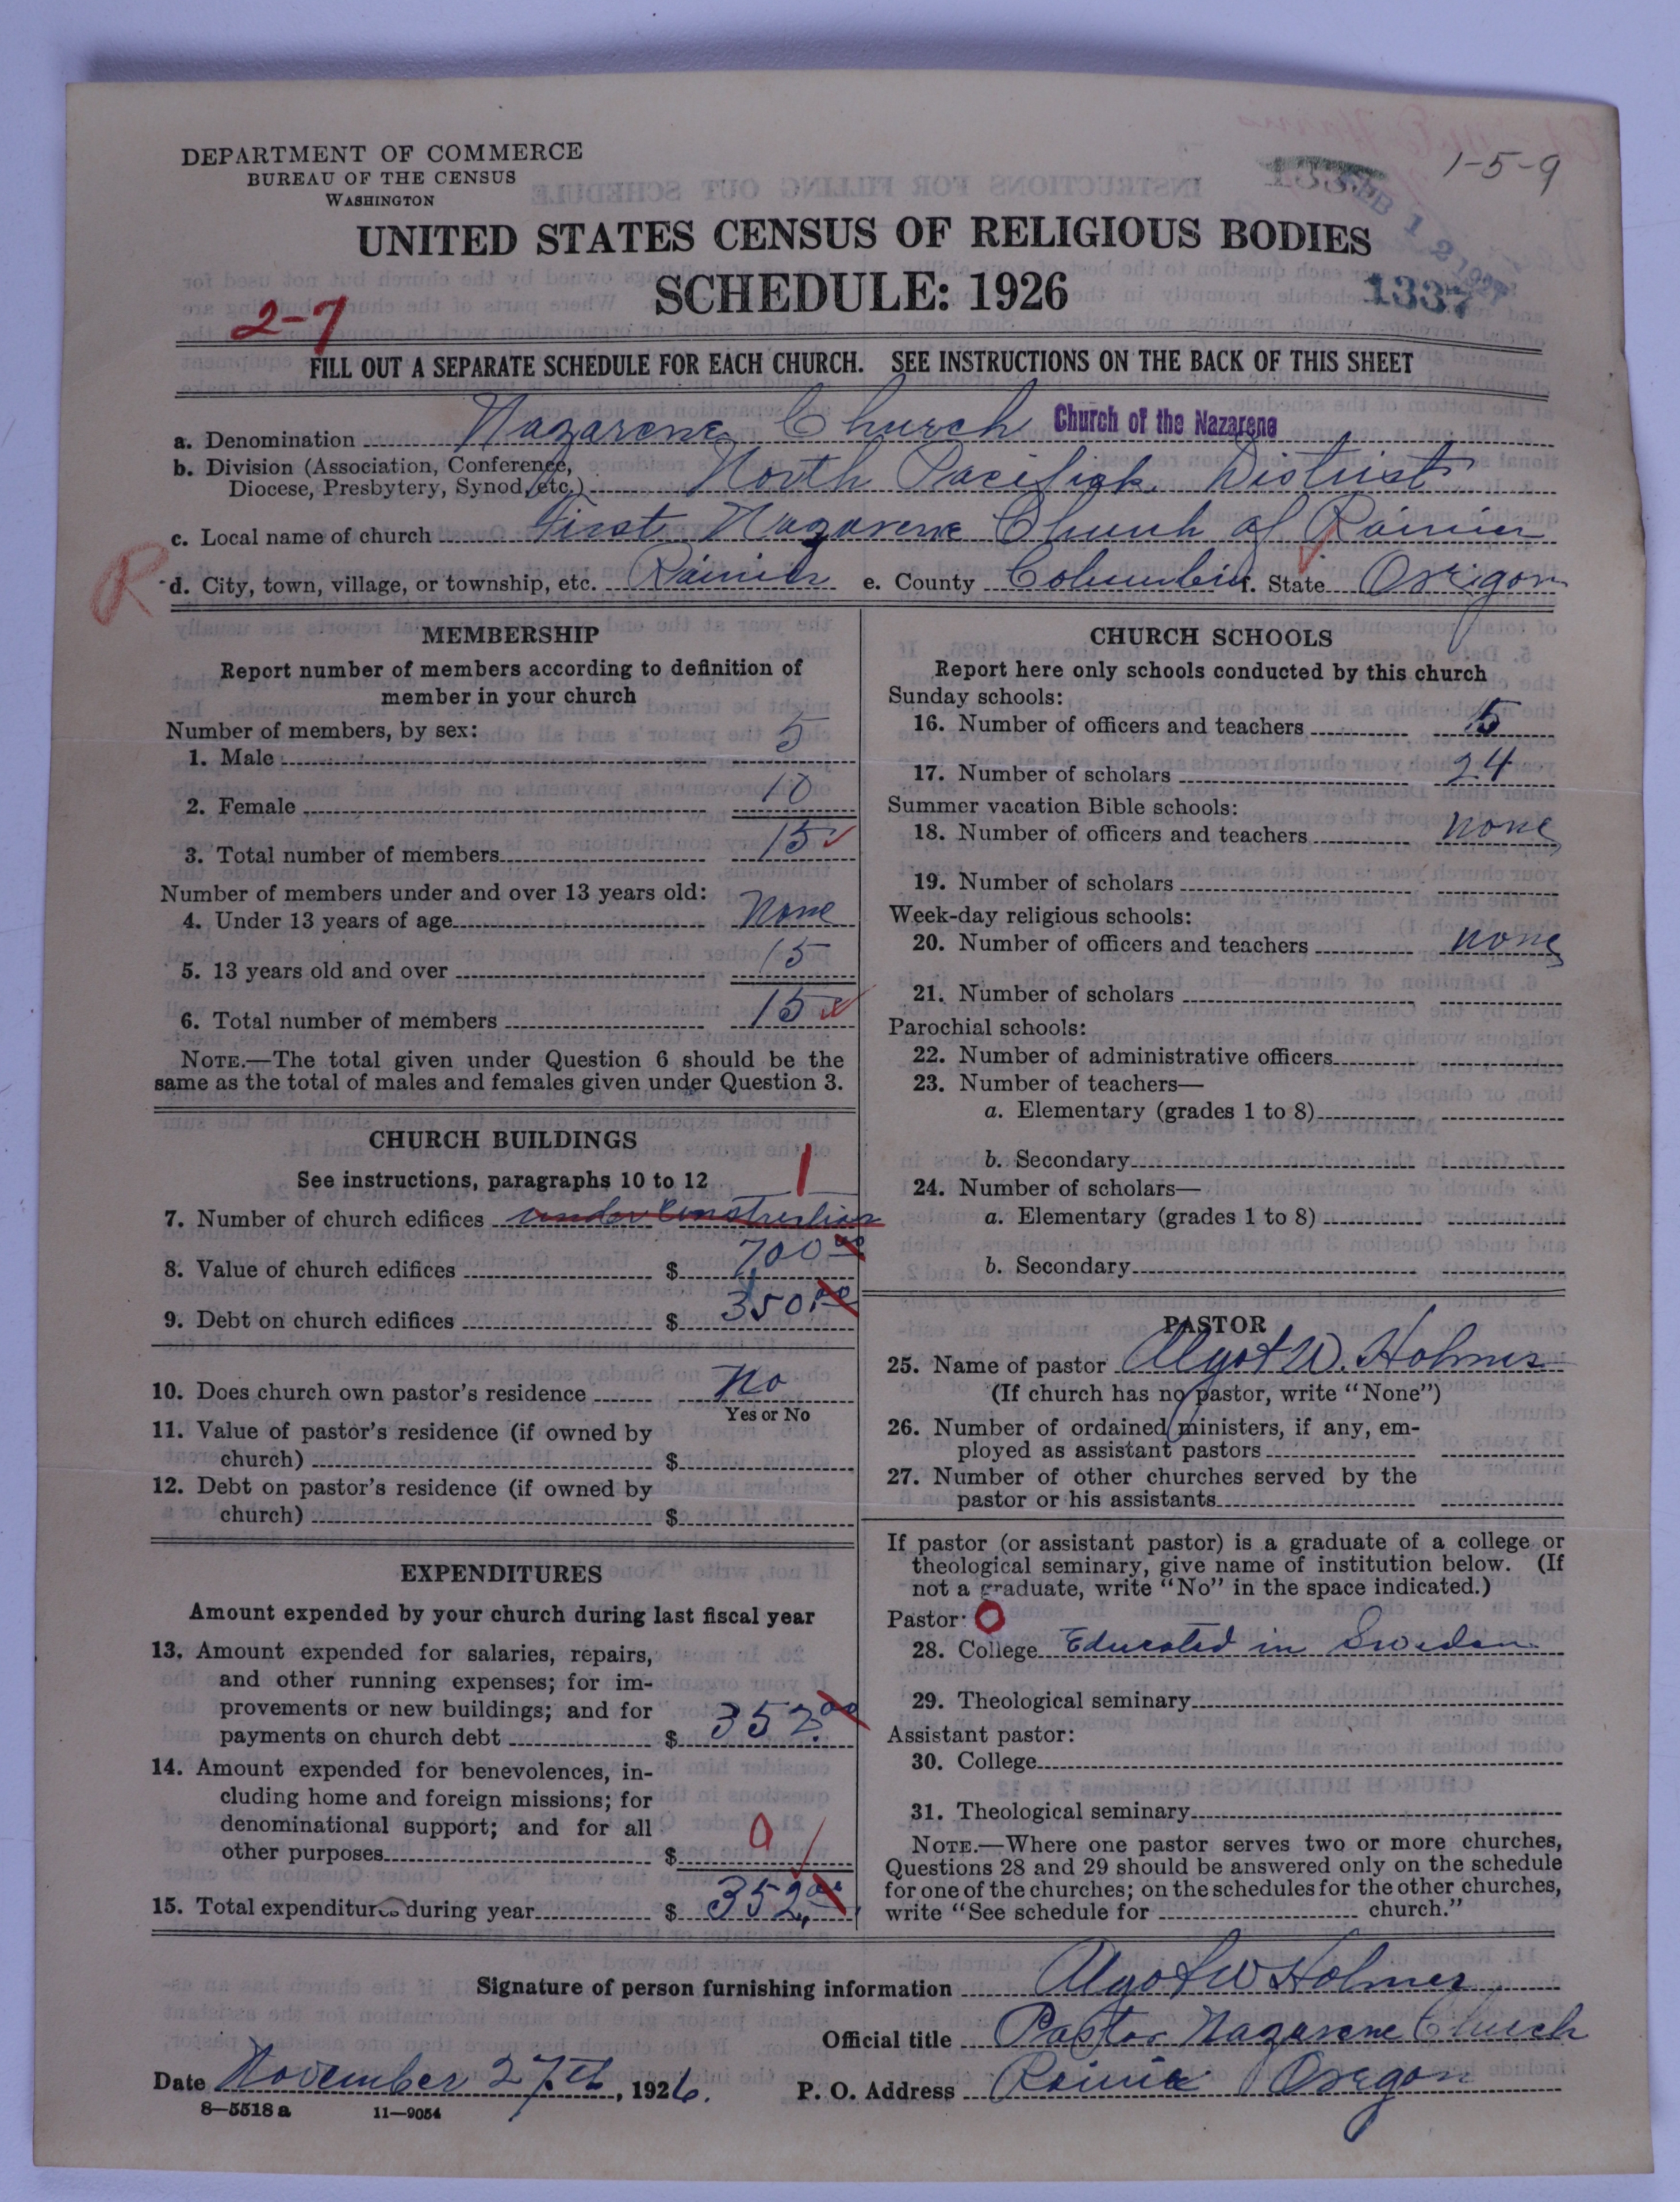 1-5-9
DEPARTMENT OF COMMERCE
BUREAU OF THE CENSUS
WASHINGTON
FEB 12 1927
UNITED STATES CENSUS OF RELIGIOUS BODIES
SCHEDULE: 1926
1337
2-7
FILL OUT A SEPARATE SCHEDULE FOR EACH CHURCH. SEE INSTRUCTIONS ON THE BACK OF THIS SHEET
a. Denomination Nazarene Church Church of the Nazarene
b. Division (Association, Conference,
Diocese, Presbytery, Synod, etc.) North Pacifick District
c. Local name of church First Nazarene Church of Rainier
R
d. City, town, village, or township, etc. Rainier e. County Columbia f. State Origon
MEMBERSHIP
Report number of members according to definition of
member in your church
Number of members, by sex:
1. Male 5
2. Female 10
3. Total number of members 15
Number of members under and over 13 years old:
4. Under 13 years of age None
5. 13 years old and over 15
6. Total number of members 15
NOTE.—The total given under Question 6 should be the
same as the total of males and females given under Question 3.
CHURCH BUILDINGS
See instructions, paragraphs 10 to 12 1
7. Number of church edifices under Construction
8. Value of church edifices $ 700.00
9. Debt on church edifices $ 350.00
10. Does church own pastor's residence No
Yes or No
11. Value of pastor's residence (if owned by
church) $
12. Debt on pastor's residence (if owned by
church) $
EXPENDITURES
Amount expended by your church during last fiscal year
13. Amount expended for salaries, repairs,
and other running expenses; for im-
provements or new buildings; and for
payments on church debt $ 352.00
14. Amount expended for benevolences, in-
cluding home and foreign missions; for
denominational support; and for all
other purposes $ 0
15. Total expenditures during year $ 352.00
CHURCH SCHOOLS
Report here only schools conducted by this church
Sunday schools:
16. Number of officers and teachers 5
17. Number of scholars 24
Summer vacation Bible schools:
18. Number of officers and teachers none
19. Number of scholars
Week-day religious schools:
20. Number of officers and teachers none
21. Number of scholars
Parochial schools:
22. Number of administrative officers
23. Number of teachers—
a. Elementary (grades 1 to 8)
b. Secondary
24. Number of scholars—
a. Elementary (grades 1 to 8)
b. Secondary
PASTOR
25. Name of pastor Algot W. Holmer
(If church has no pastor, write "None")
26. Number of ordained ministers, if any, em-
ployed as assistant pastors
27. Number of other churches served by the
pastor or his assistants
If pastor (or assistant pastor) is a graduate of a college or
theological seminary, give name of institution below. (If
not a graduate, write "No" in the space indicated.)
Pastor: O
28. College Educated in Sweden
29. Theological seminary
Assistant pastor:
30. College
31. Theological seminary
NOTE.—Where one pastor serves two or more churches,
Questions 28 and 29 should be answered only on the schedule
for one of the churches; on the schedules for the other churches,
write "See schedule for church."
Signature of person furnishing information Algot W Holmer
Official title Pastor Nazarene Church
Date November 27th, 1926. P. O. Address Rainier Oregon
8—5518a 11—9054